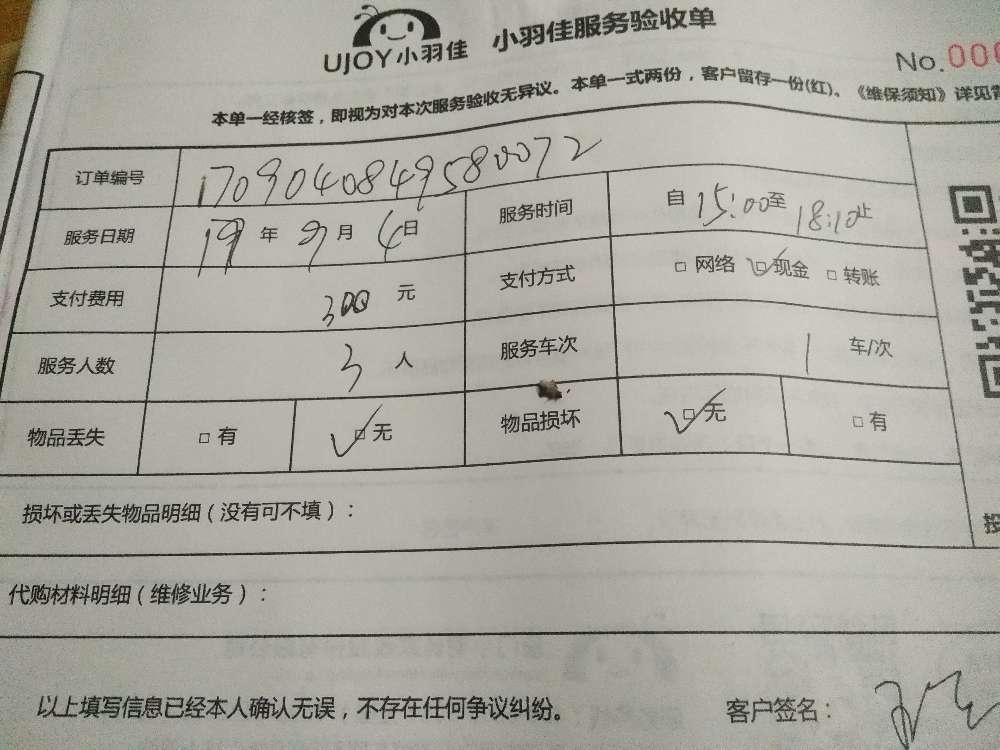 UJOY小羽佳 小羽佳服务验收单
No.000
本单一经核签，即视为对本次服务验收无异议。本单一式两份，客户留存一份(红)。《维保须知》详见背
订单编号 1709040849580072
服务日期 年 9月 4日 服务时间 自 15:00至 18:10止
支付费用 300 元 支付方式 □ 网络 ☑ 现金 □ 转账
服务人数 3 人 服务车次 1 车/次
物品丢失 □ 有 ☑ 无 物品损坏 ☑ 无 □ 有
损坏或丢失物品明细（没有可不填）：
代购材料明细（维修业务）：
以上填写信息已经本人确认无误，不存在任何争议纠纷。 客户签名：